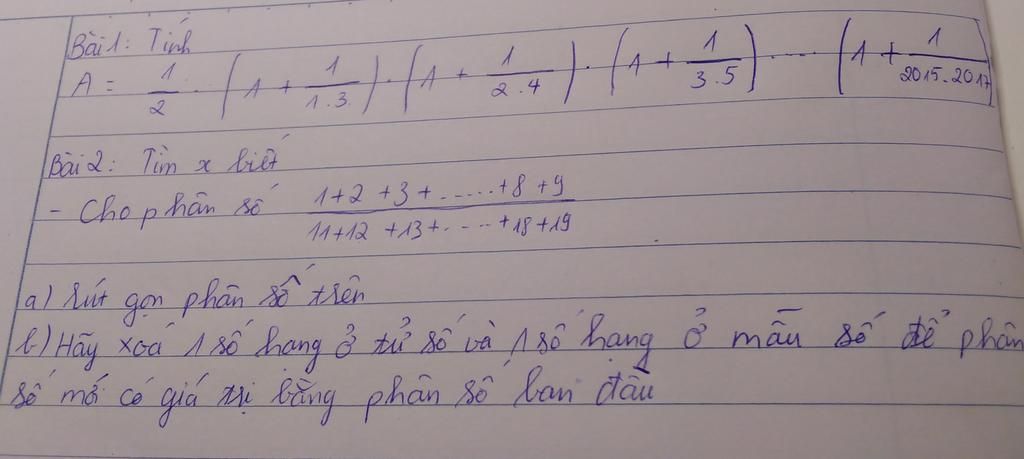 Bài 1: Tính
A = 1/2 . (1 + 1/1.3) . (1 + 1/2.4) . (1 + 1/3.5) ..... (1 + 1/2015.2017)
Bài 2: Tìm x biết
- Cho phân số (1+2+3+.....+8+9)/(11+12+13+.....+18+19)
a) Rút gọn phân số trên
b) Hãy xoá 1 số hạng ở tử số và 1 số hạng ở mẫu số để phân
số mớ có giá trị bằng phân số ban đầu